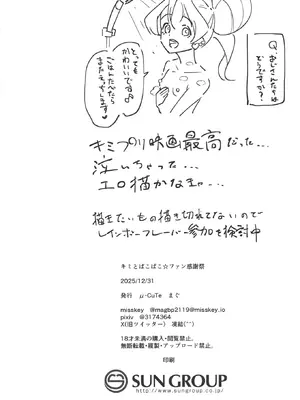 Q.おじさんたちは
どうですか?
とっても
かわいいです♡
ごはんたべたら
またえっちします♥
キミプリ映画最高だった…
泣いちゃった…
エロ描かなきゃ…
描きたいもの描き切れてないので
レインボーフレーバー参加を検討中
キミとぱこぱこ☆ファン感謝祭
2025/12/31
発行 μ-CuTe まぐ
misskey @magbp2119@misskey.io
pixiv @3174364
X(旧ツイッター) 凍結(^^)
18才未満の購入・閲覧禁止。
無断転載・複製・アップロード禁止。
印刷
SUN GROUP